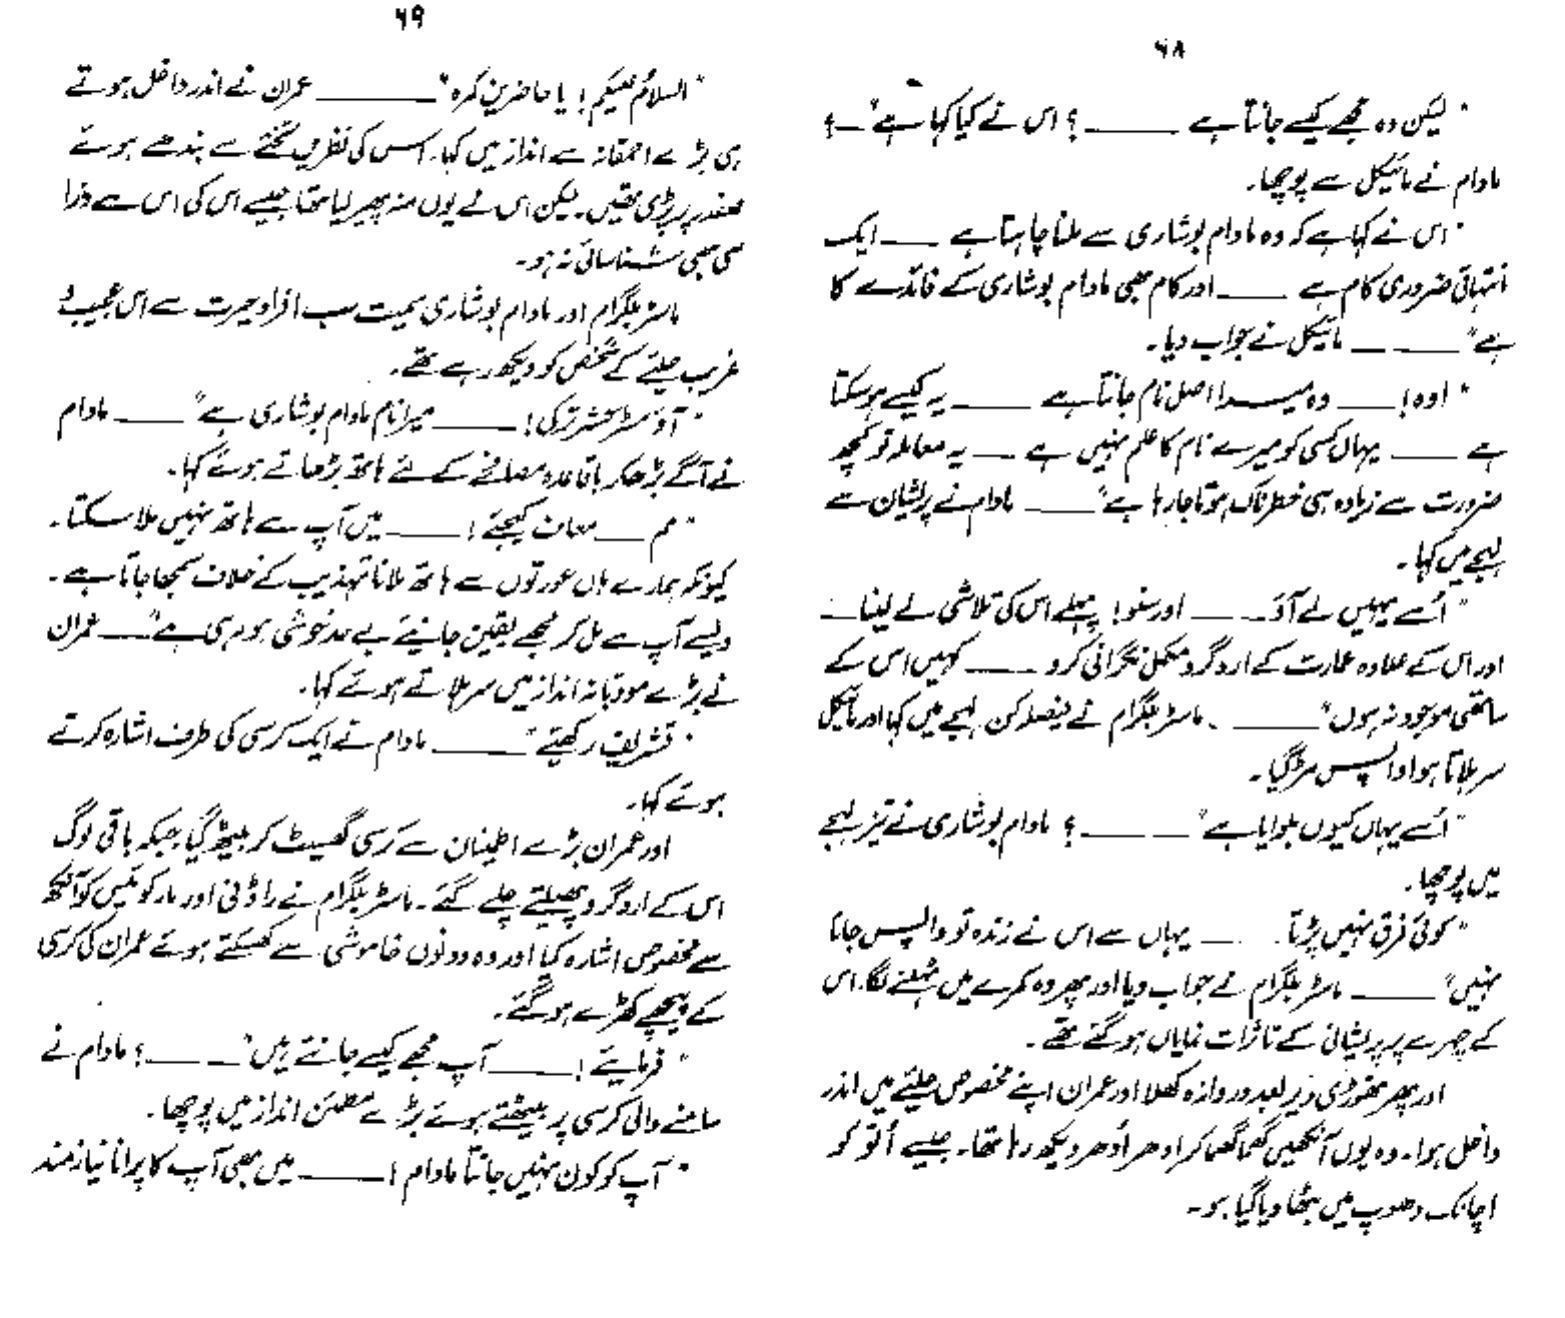 ۶۸
" لیکن وہ مجھے کیسے جانتا ہے ــــــ ؟ اس نے کیا کہا ہے" ــ ؟
مادام نے مائیکل سے پوچھا۔
" اس نے کہا ہے کہ وہ مادام بوشاری سے ملنا چاہتا ہے ــــــ ایک
انتہائی ضروری کام ہے ــــــ اور کام بھی مادام بوشاری کے فائدے کا
ہے" ــــــ ــــــ مائیکل نے جواب دیا۔
" اوہ! ــــــ وہ میرا اصل نام جانتا ہے ــــــ یہ کیسے ہو سکتا
ہے ــــــ یہاں کسی کو میرے نام کا علم نہیں ہے ــــــ یہ معاملہ تو کچھ
ضرورت سے زیادہ ہی خطرناک ہوتا جا رہا ہے" ــــــ مادام نے پریشان سے
لہجے میں کہا۔
" اُسے یہیں لے آؤ ــــــ اور سنو! پہلے اس کی تلاشی لے لینا ــــ
اور اس کے علاوہ عمارت کے اردگرد مکمل نگرانی کرو ــــــ کہیں اس کے
ساتھی موجود نہ ہوں" ــــــ ۔ ماسٹر بلگرام نے فیصلہ کن لہجے میں کہا اور مائیکل
سر ہلاتا ہوا واپس مڑ گیا۔
" اُسے یہاں کیوں بلوایا ہے" ــــــ ؟ مادام بوشاری نے تیز لہجے
میں پوچھا۔
" کوئی فرق نہیں پڑتا ــــ یہاں سے اس نے زندہ تو واپس جانا
نہیں" ــــــ ماسٹر بلگرام نے جواب دیا اور پھر وہ کمرے میں ٹہلنے لگا۔ اس
کے چہرے پر پریشانی کے تاثرات نمایاں ہو گئے تھے۔
اور پھر تھوڑی دیر بعد دروازہ کھلا اور عمران اپنے مخصوص حلیئے میں اندر
داخل ہوا۔ وہ یوں آنکھیں گھما گھما کر ادھر اُدھر دیکھ رہا تھا۔ جیسے اُلو کو
اچانک دھوپ میں بٹھا دیا گیا ہو۔
۶۹
" السلام علیکم! یا حاضرین کمرہ" ــــــ عمران نے اندر داخل ہوتے
ہی بڑے احمقانہ سے انداز میں کہا۔ اس کی نظریں تختے سے بندھے ہوئے
صفدر پر پڑی تھیں۔ لیکن اس نے یوں منہ پھیر لیا تھا جیسے اس کی اس سے ذرا
سی بھی شناسائی نہ ہو۔
ماسٹر بلگرام اور مادام بوشاری سمیت سب افراد حیرت سے اس عجیب و
غریب حلیئے کے شخص کو دیکھ رہے تھے۔
" آؤ مسٹر حشر ترکی! ــــــ میرا نام مادام بوشاری ہے" ــــــ مادام
نے آگے بڑھ کر باقاعدہ مصافحے کے لئے ہاتھ بڑھاتے ہوئے کہا۔
" مم ــــ معاف کیجئے! ــــــ میں آپ سے ہاتھ نہیں ملا سکتا۔
کیونکہ ہمارے ہاں عورتوں سے ہاتھ ملانا تہذیب کے خلاف سمجھا جاتا ہے۔
ویسے آپ سے مل کر مجھے یقین جانیئے بے حد خوشی ہو رہی ہے" ــــــ عمران
نے بڑے مودبانہ انداز میں سر ہلاتے ہوئے کہا۔
" تشریف رکھئے" ــــــ مادام نے ایک کرسی کی طرف اشارہ کرتے
ہوئے کہا۔
اور عمران بڑے اطمینان سے کرسی گھسیٹ کر بیٹھ گیا جبکہ باقی لوگ
اس کے اردگرد پھیلتے چلے گئے۔ ماسٹر بلگرام نے راڈنی اور مارکوئیس کو آنکھ
سے مخصوص اشارہ کیا اور وہ دونوں خاموشی سے کھسکتے ہوئے عمران کی کرسی
کے پیچھے کھڑے ہو گئے۔
" فرمائیے! ــــــ آپ مجھے کیسے جانتے ہیں" ــــــ ؟ مادام نے
سامنے والی کرسی پر بیٹھتے ہوئے بڑے مطمئن انداز میں پوچھا۔
" آپ کو کون نہیں جانتا مادام! ــــــ میں بھی آپ کا پرانا نیاز مند